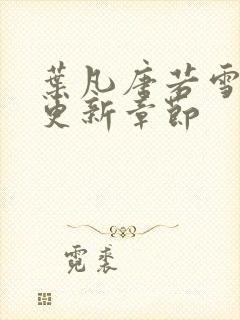 葉凡唐若雪
更新章節
霓裘